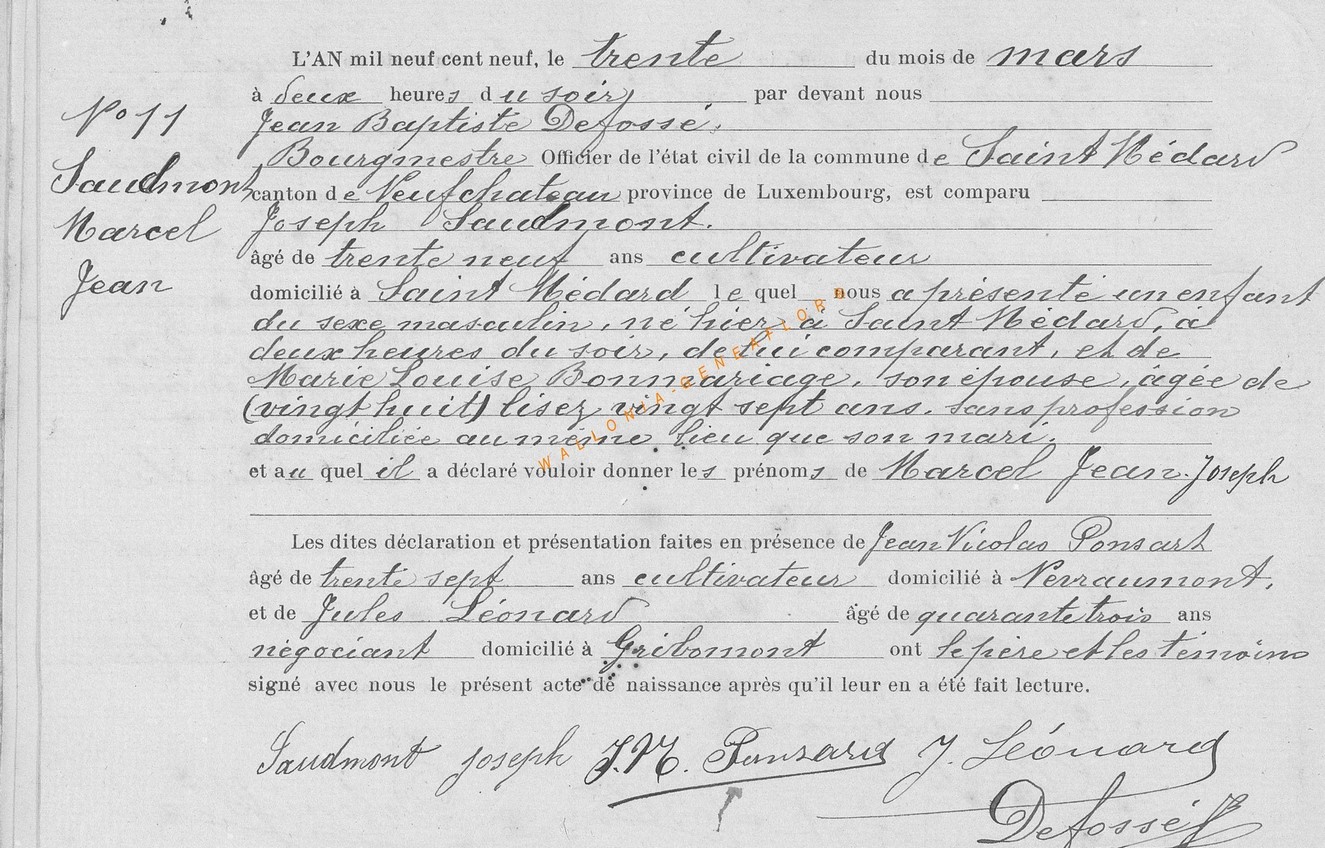 L'AN mil neuf cent neuf, le trente du mois de mars
à deux heures du soir, par devant nous
N° 11
Jean Baptiste Defossé.
Bourgmestre Officier de l'état civil de la commune de Saint Médard
Saudmont
canton de Neufchateau province de Luxembourg, est comparu
Marcel
Joseph Saudmont.
âgé de trente neuf ans cultivateur
Jean
domicilié à Saint Médard lequel nous a présenté un enfant
du sexe masculin, né hier, à Saint Médard, à
deux heures du soir, de lui comparant, et de
Marie Louise Bonmariage, son épouse, âgée de
(vingt huit) lisez vingt sept ans, sans profession
domiciliée au même lieu que son mari.
et auquel il a déclaré vouloir donner les prénoms de Marcel Jean Joseph
Les dites déclaration et présentation faites en présence de Jean Nicolas Ponsart
âgé de trente sept ans cultivateur domicilié à Nevraumont,
et de Jules Léonard âgé de quarante trois ans
négociant domicilié à Gribomont ont le père et les témoins
signé avec nous le présent acte de naissance après qu'il leur en a été fait lecture.
Saudmont joseph J.N. Ponsard J. Léonard
Defossé
WALLONIA-GENEAFLORE